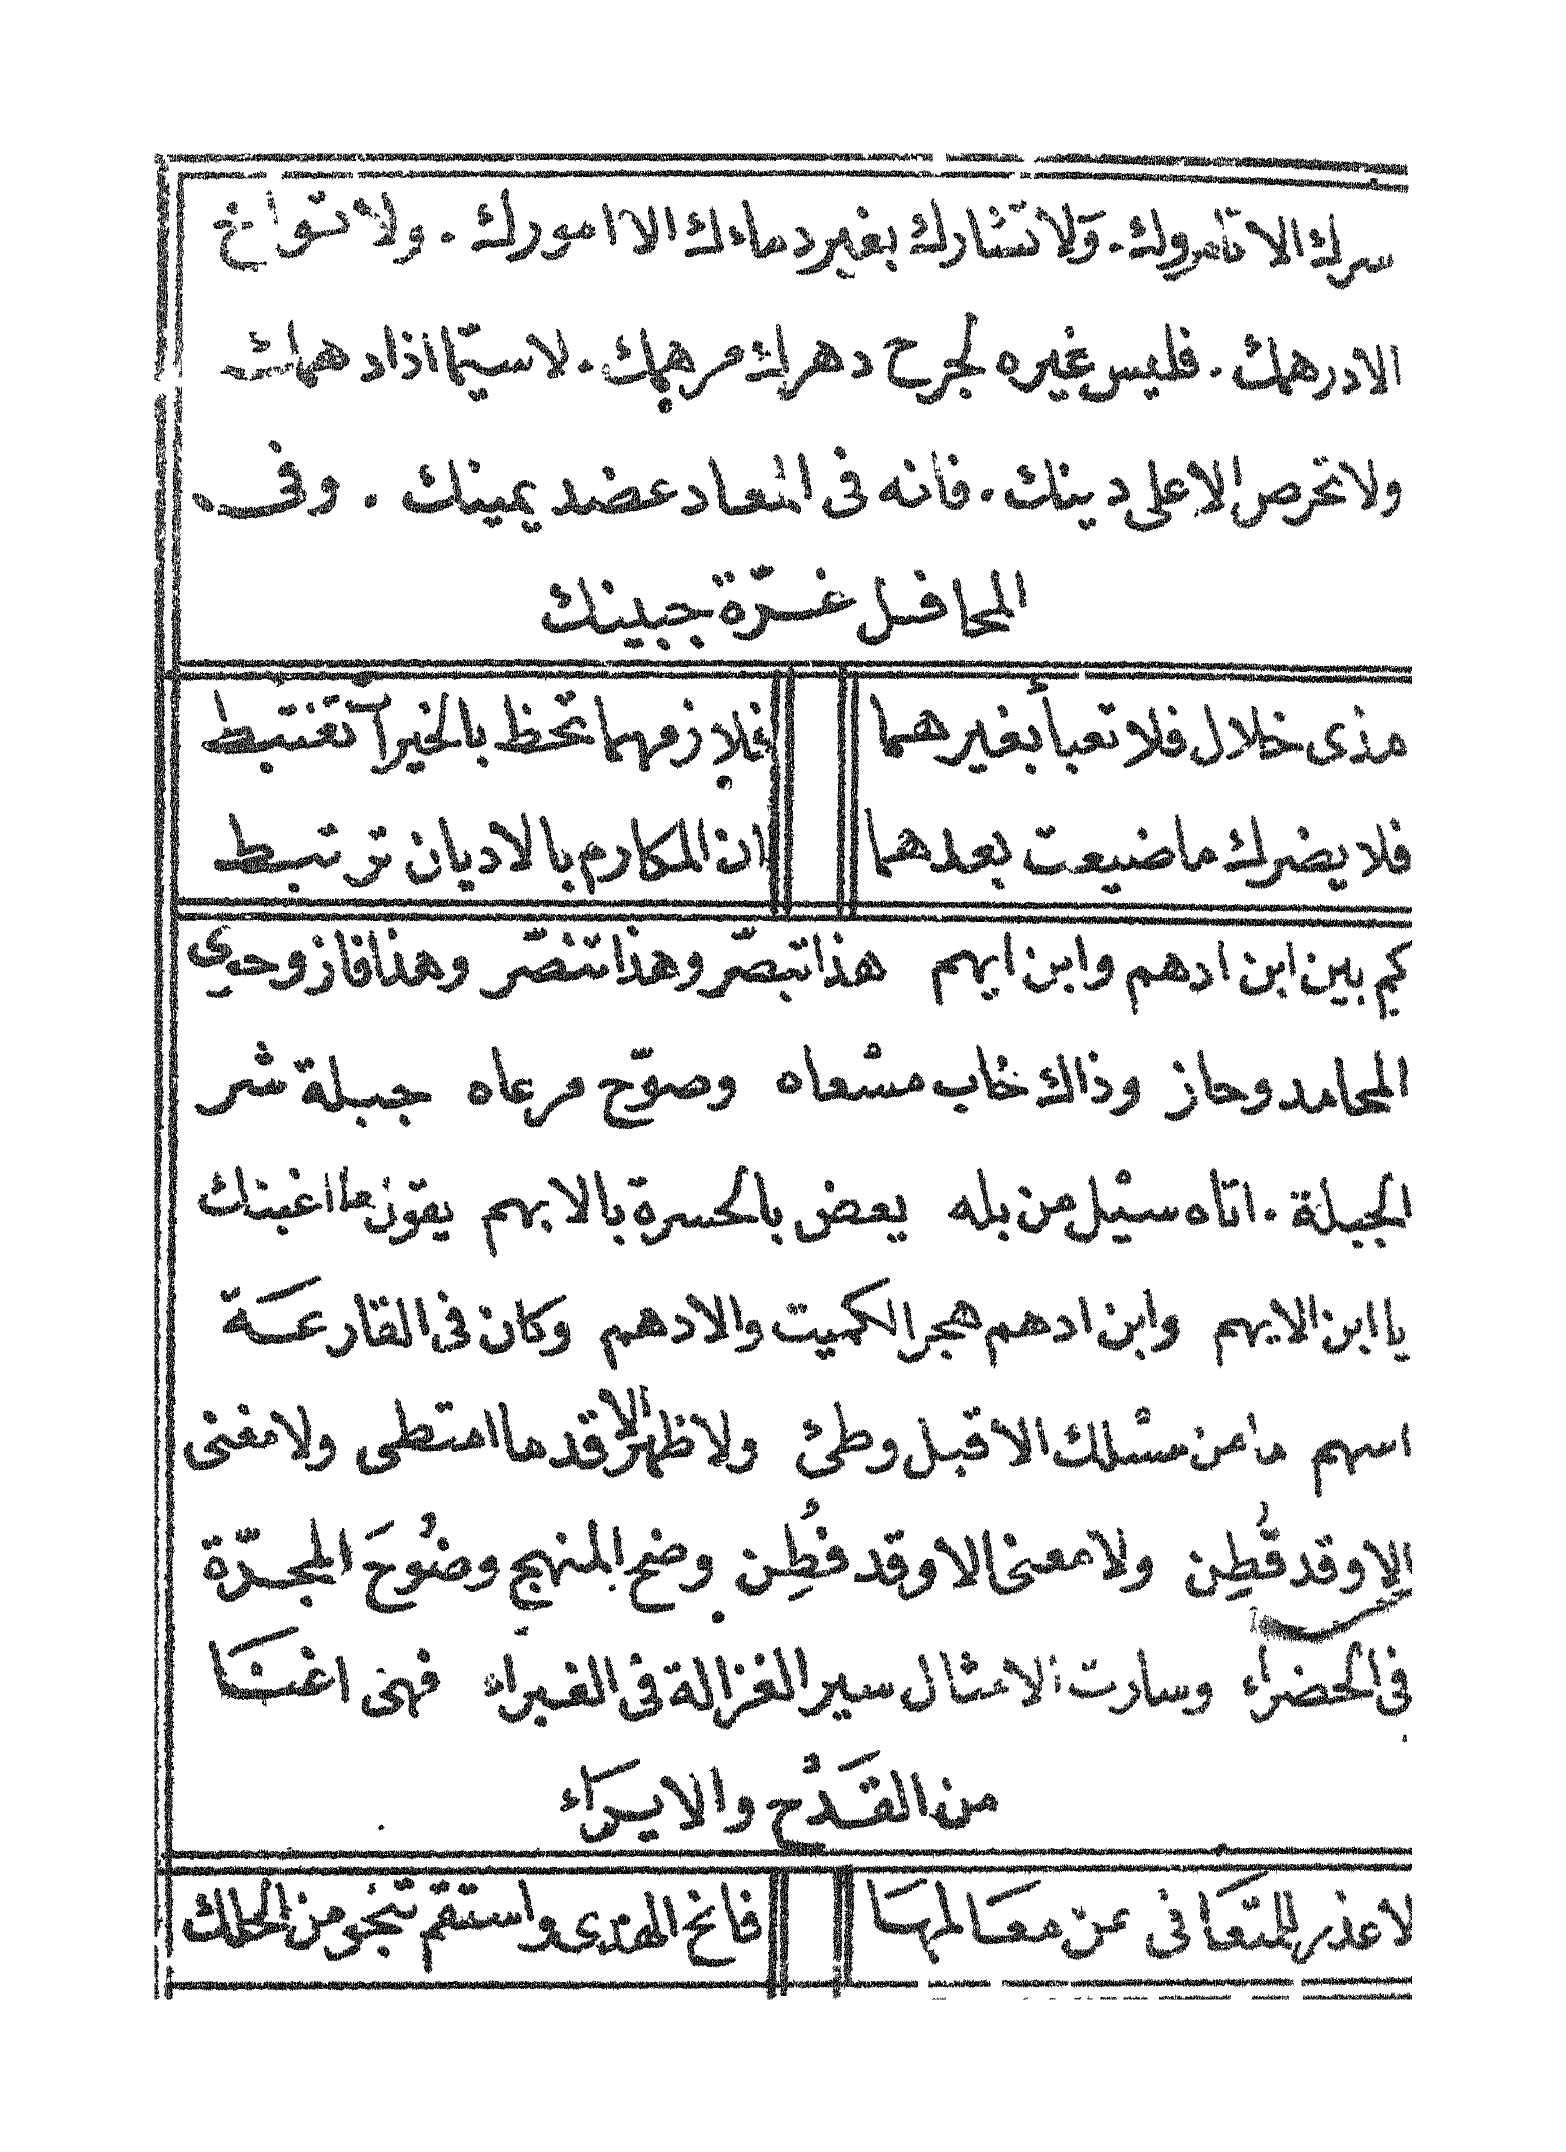 سرك الا تامروك. ولا تشارك بغير دماءك الا امورك. ولا تواخ
الا درهمك. فليس غيره لجرح دهرك مرهمك. لا سيّما اذا دهمك
ولا تحرص الا على دينك. فانه فى المعاد عضد يمينك. وفى
المحافل غرّة جبينك
مذى خلال فلا تعبأ بغيرهما فلازمهما تحظ بالخير آتغتبط
فلا يضرك ما ضيعت بعدهما ان المكارم بالاديان ترتبط
كم بين ابن ادهم وابن ايهم هذا تبصّر وهذا تنصّر وهذا فاز وحوى
المحامد وحاز وذاك خاب مسْعاه وصوّح مرعاه جبلة شر
الجبلة. اتاه سيْل من بله يعض بالحسرة بالابهم يقول ما اغبنك
يا ابن الايهم وابن ادهم هجر الكميت والادهم وكان فى القارعَة
اسهم ما من مسْلك الا قبل وطئ ولا ظهر الا قد ما امتطى ولا مغنى
الا وقد قُطِن ولا معنى الا وقد فُطِن وضح المنهج وضُوحَ المجرّة
فى الخضراء وسارت الامثال سير الغزالة فى الغبراء فهى اغنَا
من القَدْح والايرَاء
لا عذر للمتعَافى عن معَالمهَا فانح الهدى واستقم تنجو من الحلك